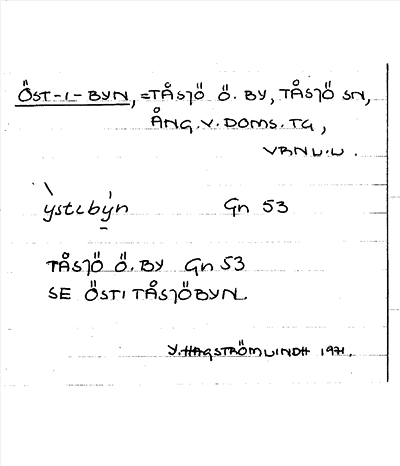 ÖST-I-BYN, =TÅSJÖ Ö. BY, TÅSJÖ SN,
ÅNG.V.DOMS.TG,
VBNL.L.
ýstıbýn Gn 53
TÅSJÖ Ö. BY Gn 53
SE ÖSTI TÅSJÖBYN.
Y. HAGSTRÖM LINDH 1971.